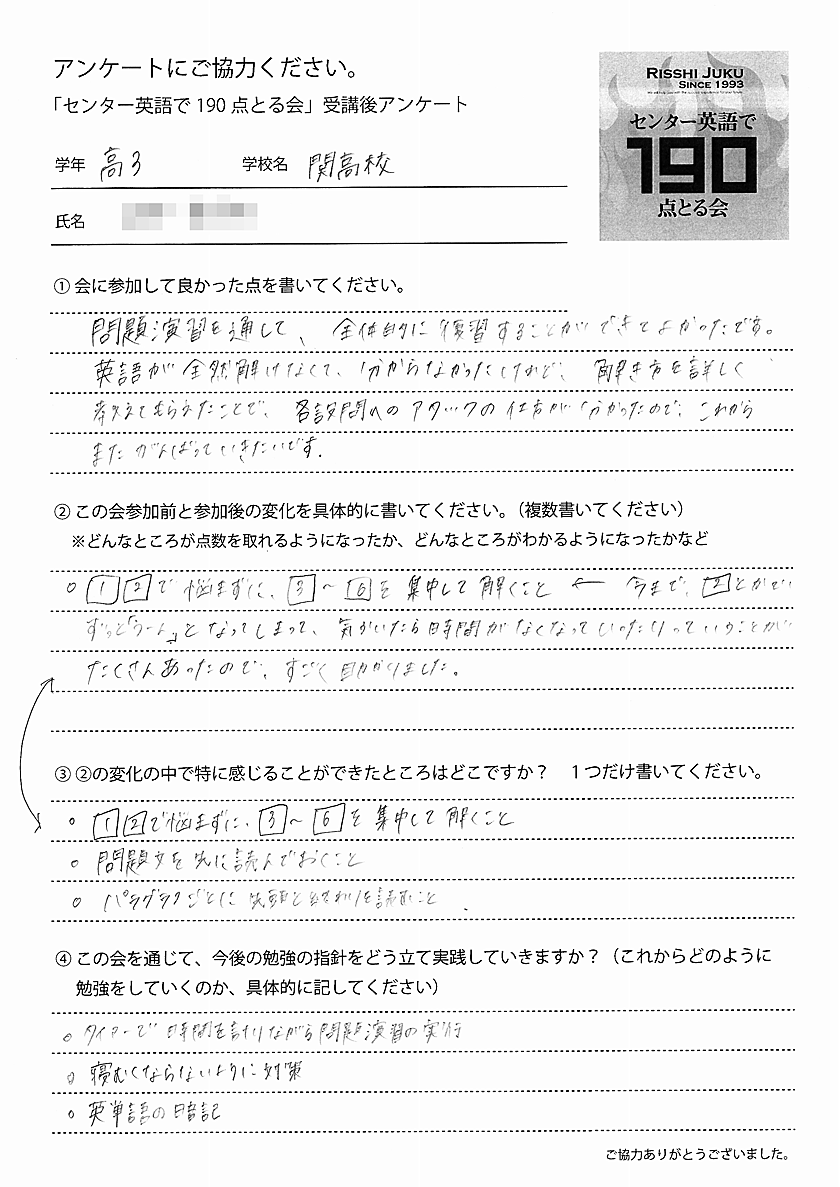 アンケートにご協力ください。
「センター英語で 190 点とる会」受講後アンケート
RISSHI JUKU
SINCE 1993
センター英語で
190
点とる会
学年 高3 学校名 関高校
氏名
① 会に参加して良かった点を書いてください。
問題演習を通して、全体的に復習することができてよかったです。
英語が全然解けなくて、分からなかったけれど、解き方を詳しく
教えてもらえたことで、各設問へのアタックの仕方が分かったので、これから
またがんばっていきたいです.
② この会参加前と参加後の変化を具体的に書いてください。（複数書いてください）
※どんなところが点数を取れるようになったか、どんなところがわかるようになったかなど
○ 1 2 で悩まずに、3 ~ 6 を集中して解くこと ← 今まで、2 とかで
ずっと「うーん」となってしまって、気がついたら時間がなくなっていったりっていうことが
たくさんあったので、すごく助かりました。
③ ②の変化の中で特に感じることができたところはどこですか？ 1つだけ書いてください。
○ 1 2 で悩まずに、3 ~ 6 を集中して解くこと
○ 問題文を先に読んでおくこと
○ パラグラフごとに先頭と終わりを読むこと.
④ この会を通じて、今後の勉強の指針をどう立て実践していきますか？（これからどのように
勉強をしていくのか、具体的に記してください）
○ タイマーで時間を計りながら問題演習の実行
○ 寝むくならないように対策
○ 英単語の暗記
ご協力ありがとうございました。